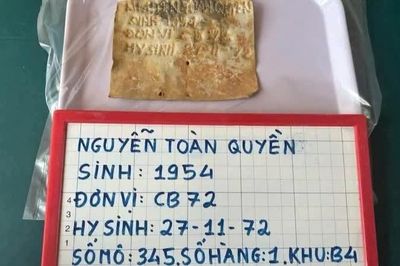 ĐƠN VỊ C
HY SINH 11 72
NGUYỄN TOÀN QUYỀN
SINH: 1954
ĐƠN VỊ: CB72
HY SINH: 27-11-72
SỐ MÔ: 345.SỐ HÀNG:1.KHU:B4